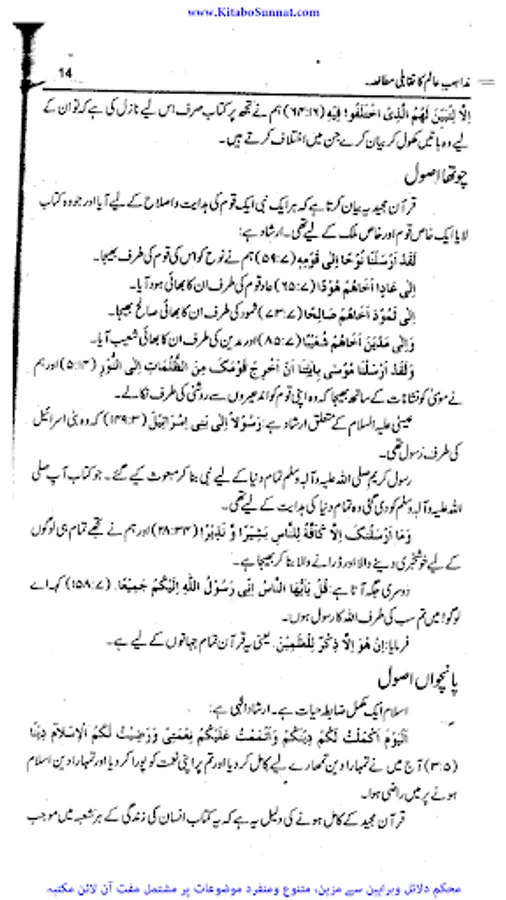 www.KitaboSunnat.com
مذاہب عالم کا تقابلی مطالعہ 14
اِلَّا لِتُبَيِّنَ لَهُمُ الَّذِی اخْتَلَفُوْا فِيْهِ (۱۶:۶۴) ہم نے تجھ پر کتاب صرف اس لیے نازل کی ہے کہ تو ان کے
لیے وہ باتیں کھول کر بیان کرے جن میں اختلاف کرتے ہیں۔
چوتھا اصول
قرآن مجید یہ بیان کرتا ہے کہ ہر ایک نبی ایک قوم کی ہدایت و اصلاح کے لیے آیا اور جو وہ کتاب
لایا ایک خاص قوم اور خاص ملک کے لیے تھی۔ ارشاد ہے:
لَقَدْ اَرْسَلْنَا نُوْحًا اِلٰى قَوْمِهٖ (۷:۵۹) ہم نے نوح کو اس کی قوم کی طرف بھیجا۔
اِلٰى عَادٍ اَخَاهُمْ هُوْدًا (۷:۶۵) عاد قوم کی طرف ان کا بھائی ہود آیا۔
اِلٰى ثَمُوْدَ اَخَاهُمْ صَالِحًا (۷:۷۳) ثمود کی طرف ان کا بھائی صالح بھیجا۔
وَاِلٰى مَدْيَنَ اَخَاهُمْ شُعَيْبًا (۷:۸۵) اور مدین کی طرف ان کا بھائی شعیب آیا۔
وَلَقَدْ اَرْسَلْنَا مُوْسٰى بِاٰيٰتِنَا اَنْ اَخْرِجْ قَوْمَكَ مِنَ الظُّلُمَاتِ اِلَى النُّوْرِ (۱۴:۵) اور ہم
نے موسیٰ کو نشانات کے ساتھ بھیجا کہ وہ اپنی قوم کو اندھیروں سے روشنی کی طرف نکالے۔
عیسیٰ علیہ السلام کے متعلق ارشاد ہے: رَسُوْلًا اِلٰى بَنِى اِسْرَائِيْلَ (۳:۴۹) کہ وہ بنی اسرائیل
کی طرف رسول تھی۔
رسول کریم صلی اللہ علیہ و آلہ وسلم تمام دنیا کے لیے نبی بنا کر مبعوث کیے گئے۔ جو کتاب آپ صلی
اللہ علیہ و آلہ وسلم کو دی گئی وہ تمام دنیا کی ہدایت کے لیے تھی۔
وَمَا اَرْسَلْنٰكَ اِلَّا كَافَّةً لِّلنَّاسِ بَشِيْرًا وَّ نَذِيْرًا (۳۴:۲۸) اور ہم نے تجھے تمام ہی لوگوں
کے لیے خوشخبری دینے والا اور ڈرانے والا بنا کر بھیجا ہے۔
دوسری جگہ آتا ہے: قُلْ يٰاَيُّهَا النَّاسُ اِنِّى رَسُوْلُ اللّٰهِ اِلَيْكُمْ جَمِيْعًا۔ (۷:۱۵۸) کہہ اے
لوگو! میں تم سب کی طرف اللہ کا رسول ہوں۔
فرمایا: اِنْ هُوَ اِلَّا ذِكْرٌ لِّلْعٰلَمِيْنَ۔ یعنی یہ قرآن تمام جہانوں کے لیے ہے۔
پانچواں اصول
اسلام ایک مکمل ضابطہ حیات ہے۔ ارشاد الٰہی ہے:
اَلْيَوْمَ اَكْمَلْتُ لَكُمْ دِيْنَكُمْ وَاَتْمَمْتُ عَلَيْكُمْ نِعْمَتِىْ وَرَضِيْتُ لَكُمُ الْاِسْلَامَ دِيْنًا
(۵:۳) آج میں نے تمہارا دین تمہارے لیے کامل کر دیا اور تم پر اپنی نعمت کو پورا کر دیا اور تمہارا دین اسلام
ہونے پر میں راضی ہوا۔
قرآن مجید کے کامل ہونے کی دلیل یہ ہے کہ یہ کتاب انسان کی زندگی کے ہر شعبہ میں موجب
محکم دلائل وبراہین سے مزین، متنوع ومنفرد موضوعات پر مشتمل مفت آن لائن مکتبہ